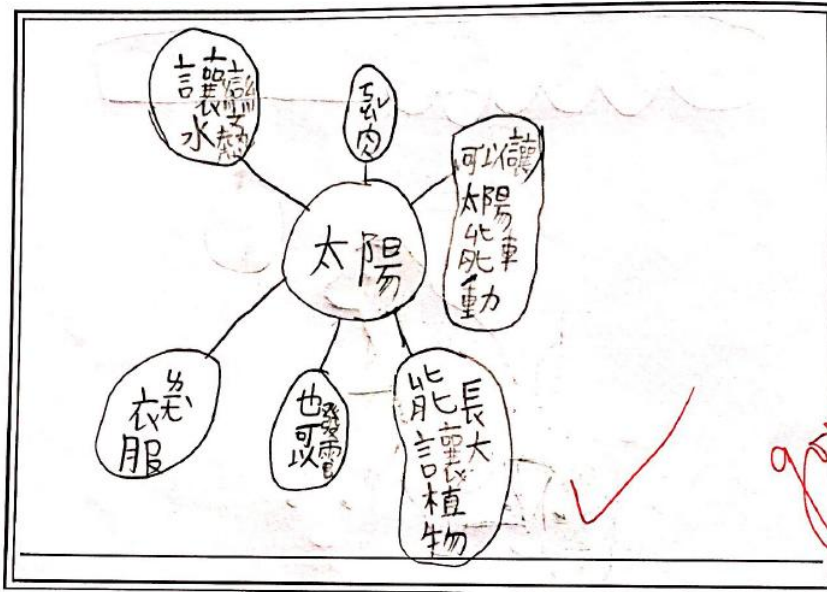 讓水
變熱
肉
可以讓
太陽
能車
動
太陽
衣服
也可以
發電
能讓植物
長大